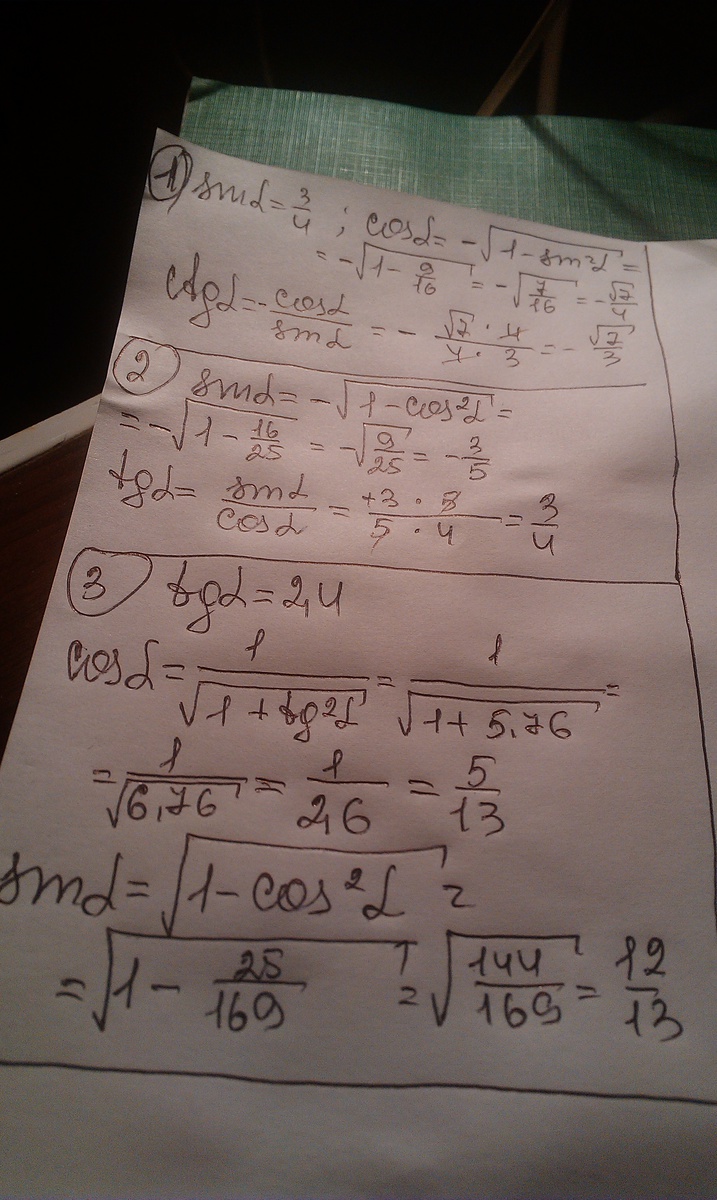 1) sinα = 3/4 ; cosα = -√(1 - sin²α) =
= -√(1 - 9/16) = -√(7/16) = -√7/4
ctgα = -cosα/sinα = - (√7 · 4)/(4 · 3) = - √7/3
2 sinα = -√(1 - cos²α) =
= -√(1 - 16/25) = -√(9/25) = -3/5
tgα = sinα/cosα = (+3 · 5)/(5 · 4) = 3/4
3 tgα = 2,4
cosα = 1/√(1 + tg²α) = 1/√(1 + 5,76) =
= 1/√(6,76) = 1/2,6 = 5/13
sinα = √(1 - cos²α) =
= √(1 - 25/169) = √(144/169) = 12/13